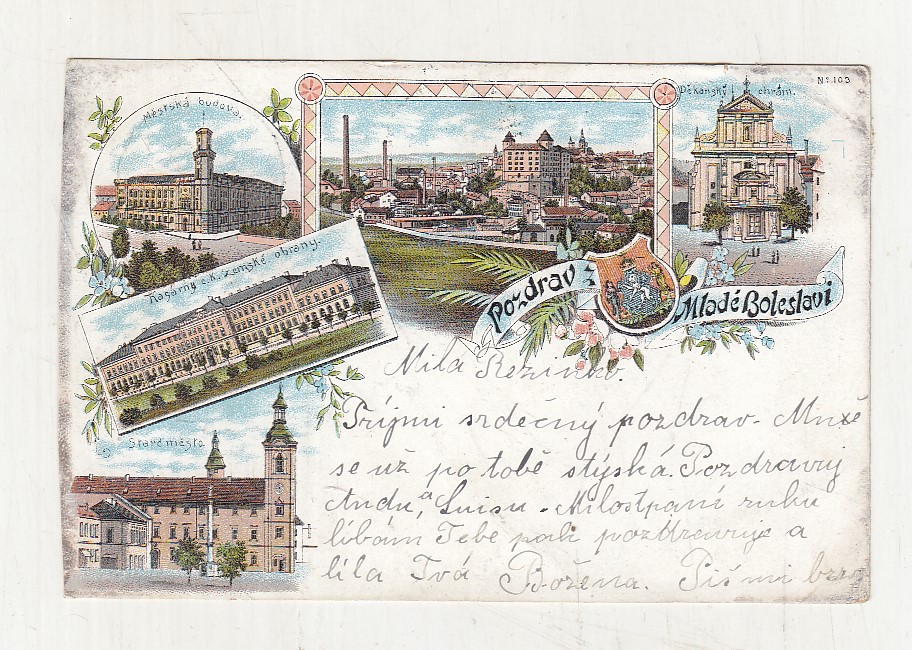 No 103
Městská budova.
Děkanský chrám.
Kasárny c.k. zemské obrany.
Pozdrav z Mladé Boleslavi
Staré město
Milá Rezinko.
Príjmi srdečný pozdrav. Mně
se už po tobě stýská. Pozdravuj
Andu, a Luisu. Milostpaní ruku
líbám Tebe pak pozdravuje a
líbá Tvá Božena. Piš mi brzo